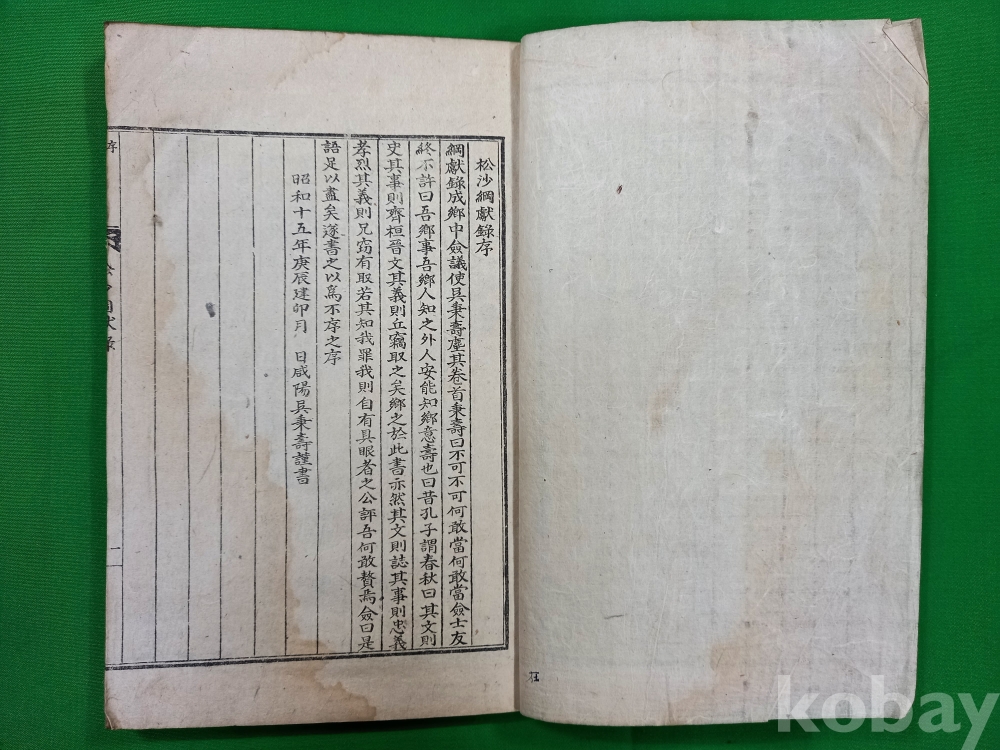 松沙綱獻錄序
綱獻錄成鄉中僉議使具秉壽塵其卷首秉壽曰不可不可何敢當何敢當僉士友
終不許曰吾鄉事吾鄉人知之外人安能知鄉意壽也曰昔孔子謂春秋曰其文則
史其事則齊桓晉文其義則丘竊取之矣鄉之於此書亦然其文則誌其事則忠義
孝烈其義則兄窃有取若其知我罪我則自有具眼者之公評吾何敢贅焉僉曰是
語足以盡矣遂書之以爲不序之序
昭和十五年庚辰建卯月 日咸陽具秉壽謹書
序
一
kobay